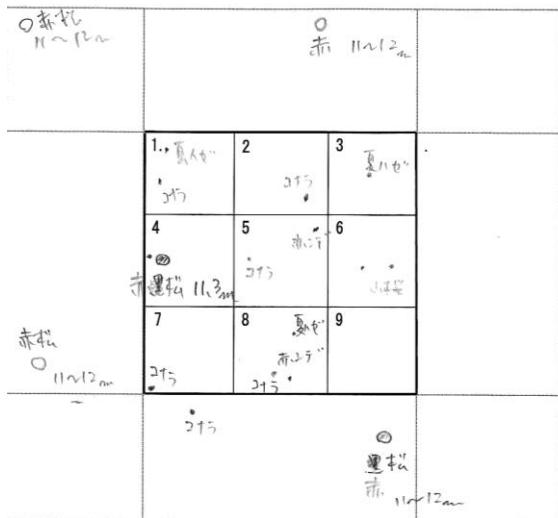 赤松
11〜12m
赤 11〜12m
1
夏ハゼ
コナラ
2
コナラ
3
夏ハゼ
4
赤松 11.3m
5
赤シデ
コナラ
6
山桜
7
コナラ
8
夏ハゼ
赤シデ
コナラ
9
赤松
11〜12m
コナラ
松
赤 11〜12m